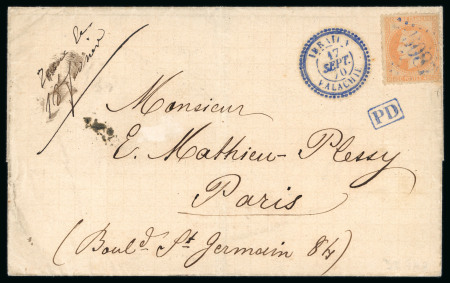 IBRAILA
17
SEPT.
70
VALACHIE
PD
Monsieur
E. Mathieu-Plessy
Paris
(Boul.d St Germain 84)